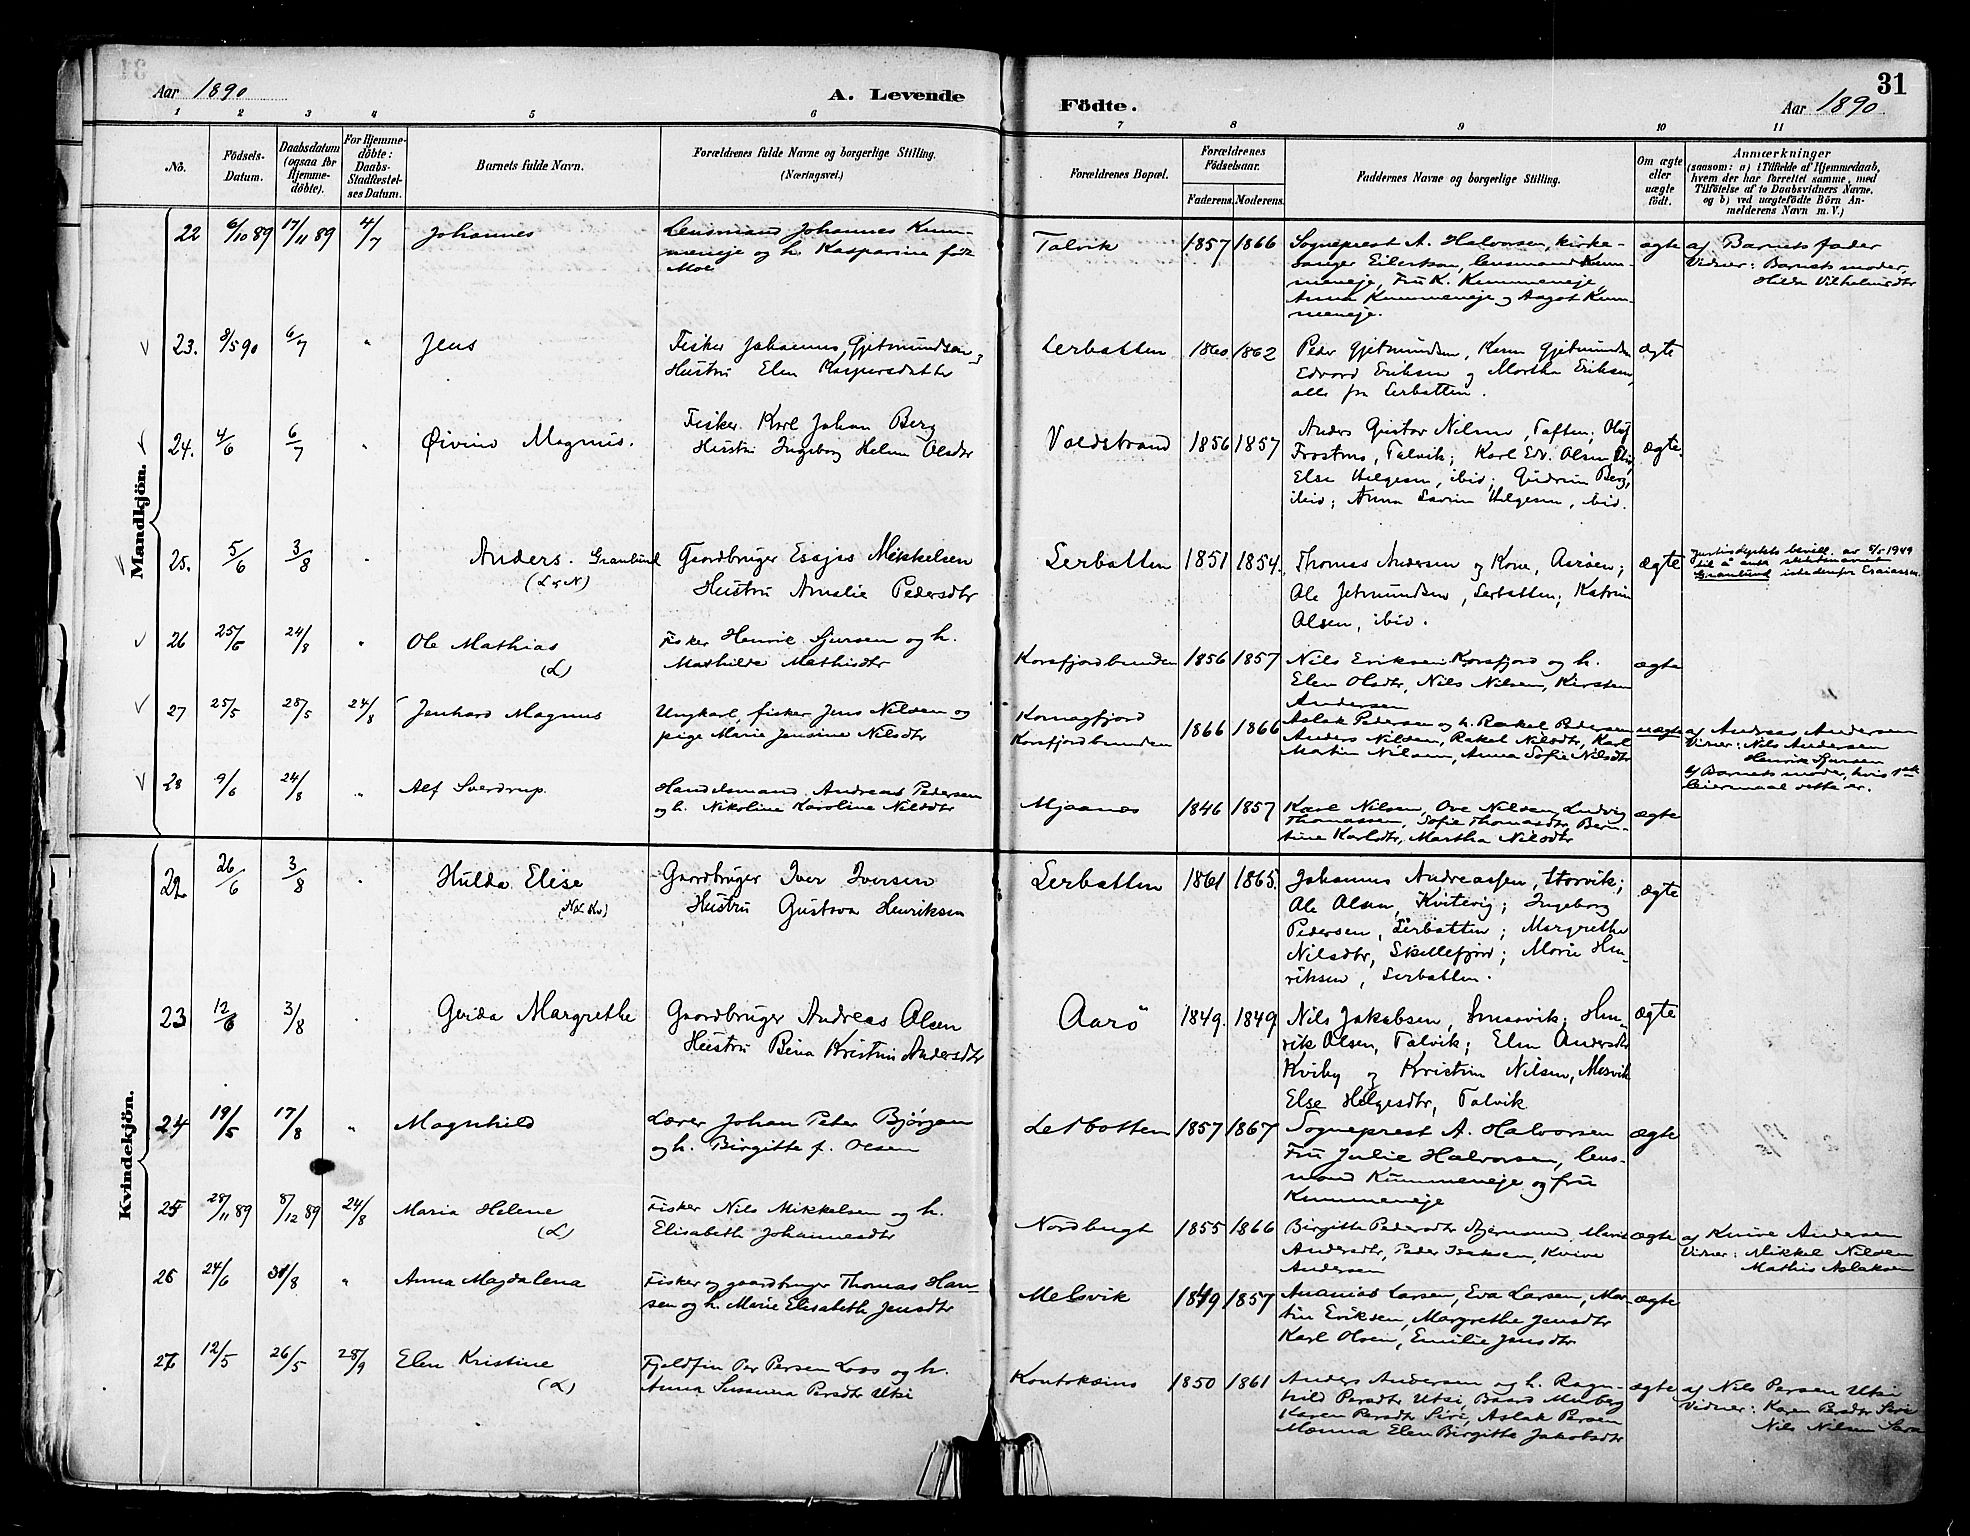 31
Aar 1890
A. Levende
Födte.
Aar 1890
1 2 3 4 5 6 7 8 9 10 11
No.
Födsels-Datum.
Daabsdatum (ogsaa for Hjemme-döbte).
For Hjemme-döbte: Daabs-Stadfæstel-ses Datum.
Barnets fulde Navn.
Forældrenes fulde Navne og borgerlige Stilling.
(Næringsvei.)
Forældrenes Bopæl.
Forældrenes Födselsaar.
Faderens. Moderens.
Faddernes Navne og borgerlige Stilling.
Om ægte eller uægte födt.
Anmærkninger
(saasom: a) i Tilfælde af Hjemmedaab,
hvem der har forrettet samme, med
Tilföielse af to Daabsvidners Navne,
og b) ved uægtefödte Börn An-
melderens Navn m. V.)
Mandkjön.
22 6/10 89 17/11 89 4/7 Johannes
Lensmand Johannes Kum-
meneje og h. Kasparine født
Moe
Talvik 1857 1866
Sogneprest A. Halvorsen, kirke-
sanger Eilertsen, lensmand Kum-
meneje, Fru K. Kummeneje,
Anna Kummeneje og Aagot Kum-
meneje.
ægte
af Barnets fader
Vidner: Barnets moder,
Hilda Vilhelmsdtr
23. 8/5 90 6/7 " Jens
Fisker Johannes Gjetmundsen,
Hustru Elen Kaspersdatter
Lerbotten 1860 1862
Peder Gjetmundsen, Karen Gjetmundsen
Edvard Eriksen og Martha Eriksen,
alle fra Lerbotten.
ægte
24. 4/6 6/7 " Øivind Magnus.
Fisker Karl Johan Berg
Hustru Ingeborg Helene Olsdtr
Voldstrand 1856 1857
Anders Gustav Nilsen, Toften; Olaf
Frostmo, Talvik; Karl Edv. Olsen, ibid;
Else Helgesen, ibid; Gudrun Berg,
ibid; Anna Helgesen, ibid.
ægte.
25. 5/6 3/8 " Anders. Granlund
(L & N)
Gaardbruger Esajas Mikkelsen
Hustru Amalie Pedersdtr
Lerbotten 1851 1854.
Thomas Andersen og Kone, Aarøen;
Ole Jetmundsen, Lerbotten; Katrine
Olsen, ibid.
ægte
Justisdeptets bevill. av 5/5 1949
til å anta slektsnavnet
Granlund istedenfor Esaiassen.
26 25/6 24/8 " Ole Mathias
(L)
Fisker Henrik Sjursen og h.
Mathilde Mathisdtr
Korsfjordbunden 1856 1857
Nils Eriksen Korsfjord og h.
Elen Olsdtr, Nils Nilsen, Kirsten
Andersen
ægte
27 25/5 28/5 24/8 Jenhard Magnus
Ungkarl, fisker Jens Nilsen og
pige Marie Jensine Nilsdtr
Komagfjord
Korsfjordbunden 1866 1866
Aslak Pedersen og h. Rakel Pedersen
Anders Nilsen, Rakel Nilsdtr, Karl
Martin Nilsen, Anna Sofie Nilsdtr
uægte
af Andreas Andersen
Vidner: Nils Andersen
Henrik Sjursen
b) Barnets moder, hvis 1ste
leiermaal dette er.
28 9/6 24/8 " Alf Sverdrup.
Handelsmand Andreas Pedersen
og h. Nikoline Karoline Nilsdtr
Mjaanes 1846 1857
Karl Nilsen, Ove Nilsen, Ludvig
Thomassen, Sofie Thomasdtr, Bern-
tine Karlsdtr, Martha Nilsdtr
ægte
Kvindekjön.
22 26/6 3/8 " Hulda Elise
(N & Kv)
Gaardbruger Iver Iversen
Hustru Gustava Henriksen
Lerbotten 1861 1865.
Johannes Andreassen, Storvik;
Ole Olsen, Kvitevig; Ingeborg
Pedersen, Lerbotten; Margrethe
Nilsdtr, Skillefjord; Marie Hen-
riksen, Lerbotten.
ægte
23 12/6 3/8 " Gerida Margrethe
Gaardbruger Andreas Olsen
Hustru Bina Kristine Andersdtr
Aarö 1849. 1849
Nils Jakobsen, Hen-
rik Olsen, Talvik; Elen Andersdtr
Kviby og Kristine Nilsen, Mesvik
Else Helgesdtr, Talvik
ægte
24 19/5 17/8 " Magnhild
Lærer Johan Peter Bjørgan
og h. Birgitte f. Olsen
Lerbotten 1857 1867
Sogneprest A. Halvorsen
Fru Julie Halvorsen, lens-
mand Kummeneje og fru
Kummeneje
ægte
25 28/11 89 8/12 89 24/8 Maria Helene
(L)
Fisker Nils Mikkelsen og h.
Elisabeth Johannesdtr
Nordbugt 1855 1866
Birgitte Pedersdtr Stjernsund, Marit
Andersdtr, Peder Isaksen, Kvive
Andersen
ægte
af Kvive Andersen
Vidner: Mikkel Nilsen
Mathis Aslaksen
26 24/6 31/8 " Anna Magdalena
Fisker og gaardbruger Thomas Han-
sen og h. Marie Elisabeth Jensdtr
Melsvik 1849 1857
Ananias Larsen, Eva Larsen, Mar-
tin Eriksen, Margrethe Jensdtr
Karl Olsen, Emilie Jensdtr
ægte
27 12/5 26/5 28/9 Elen Kristine
(L)
Fjeldfin Per Persen Loso og h.
Anna Susanna Persdtr Utsi
Koutokeino 1850 1861
Anders Andersen og h. Ragn-
hild Persdtr Utsi, Baard Murberg
Karen Persdtr Siri, Aslak Persen
Mænna Elen Birgitte Jakobsdtr
ægte
af Nils Persen Utsi
Vidner: Karen Persdtr Siri
Nils Nilsen Sara